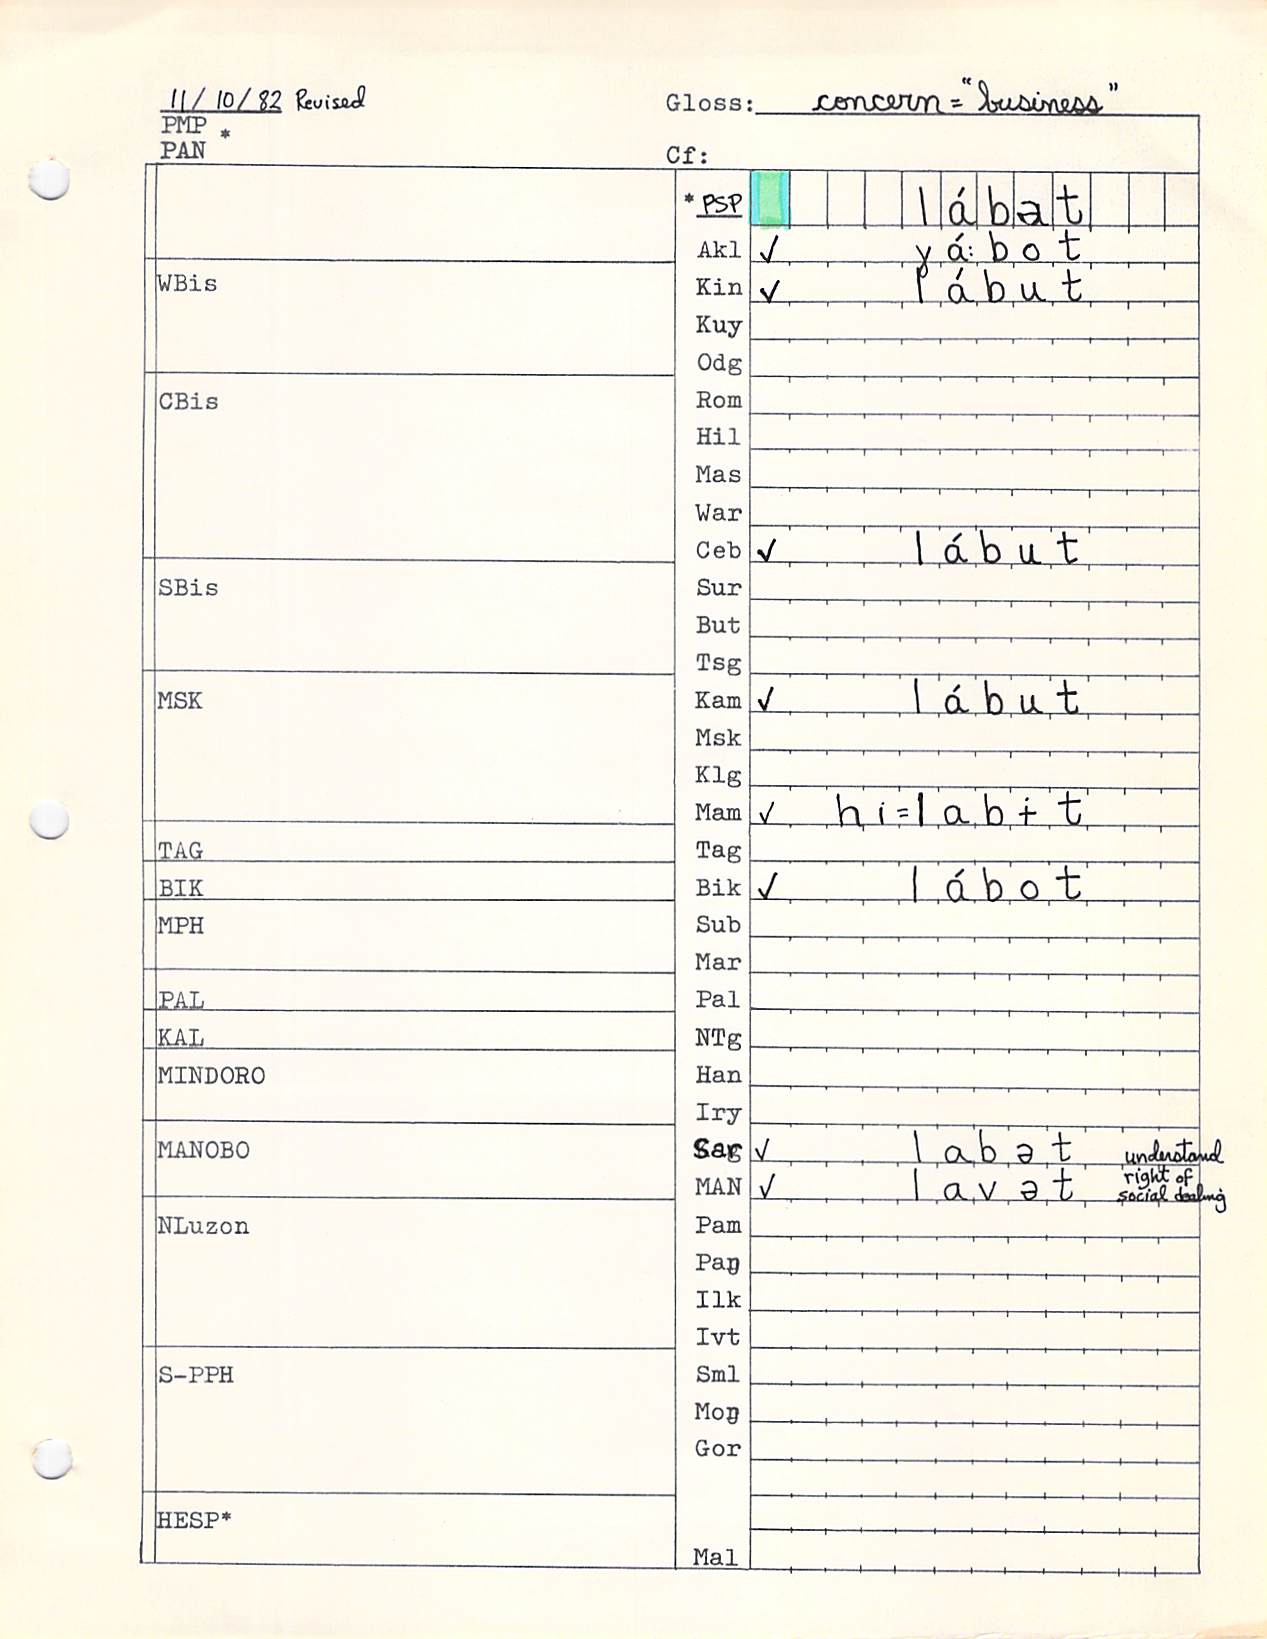 11/10/82 Revised
Gloss: concern = "business"
PMP *
PAN
Cf:
*PSP lábət
Akl ✓ yá:bot
WBis
Kin ✓ lábut
Kuy
Odg
CBis
Rom
Hil
Mas
War
Ceb ✓ lábut
SBis
Sur
But
Tsg
MSK
Kam ✓ lábut
Msk
Klg
Mam ✓ hi=labɨt
TAG
Tag
BIK
Bik ✓ lábot
MPH
Sub
Mar
PAL
Pal
KAL
NTg
MINDORO
Han
Iry
MANOBO
Sar ✓ labət understand
MAN ✓ lavət right of
social dealing
NLuzon
Pam
Paŋ
Ilk
Ivt
S-PPH
Sml
Moŋ
Gor
HESP*
Mal